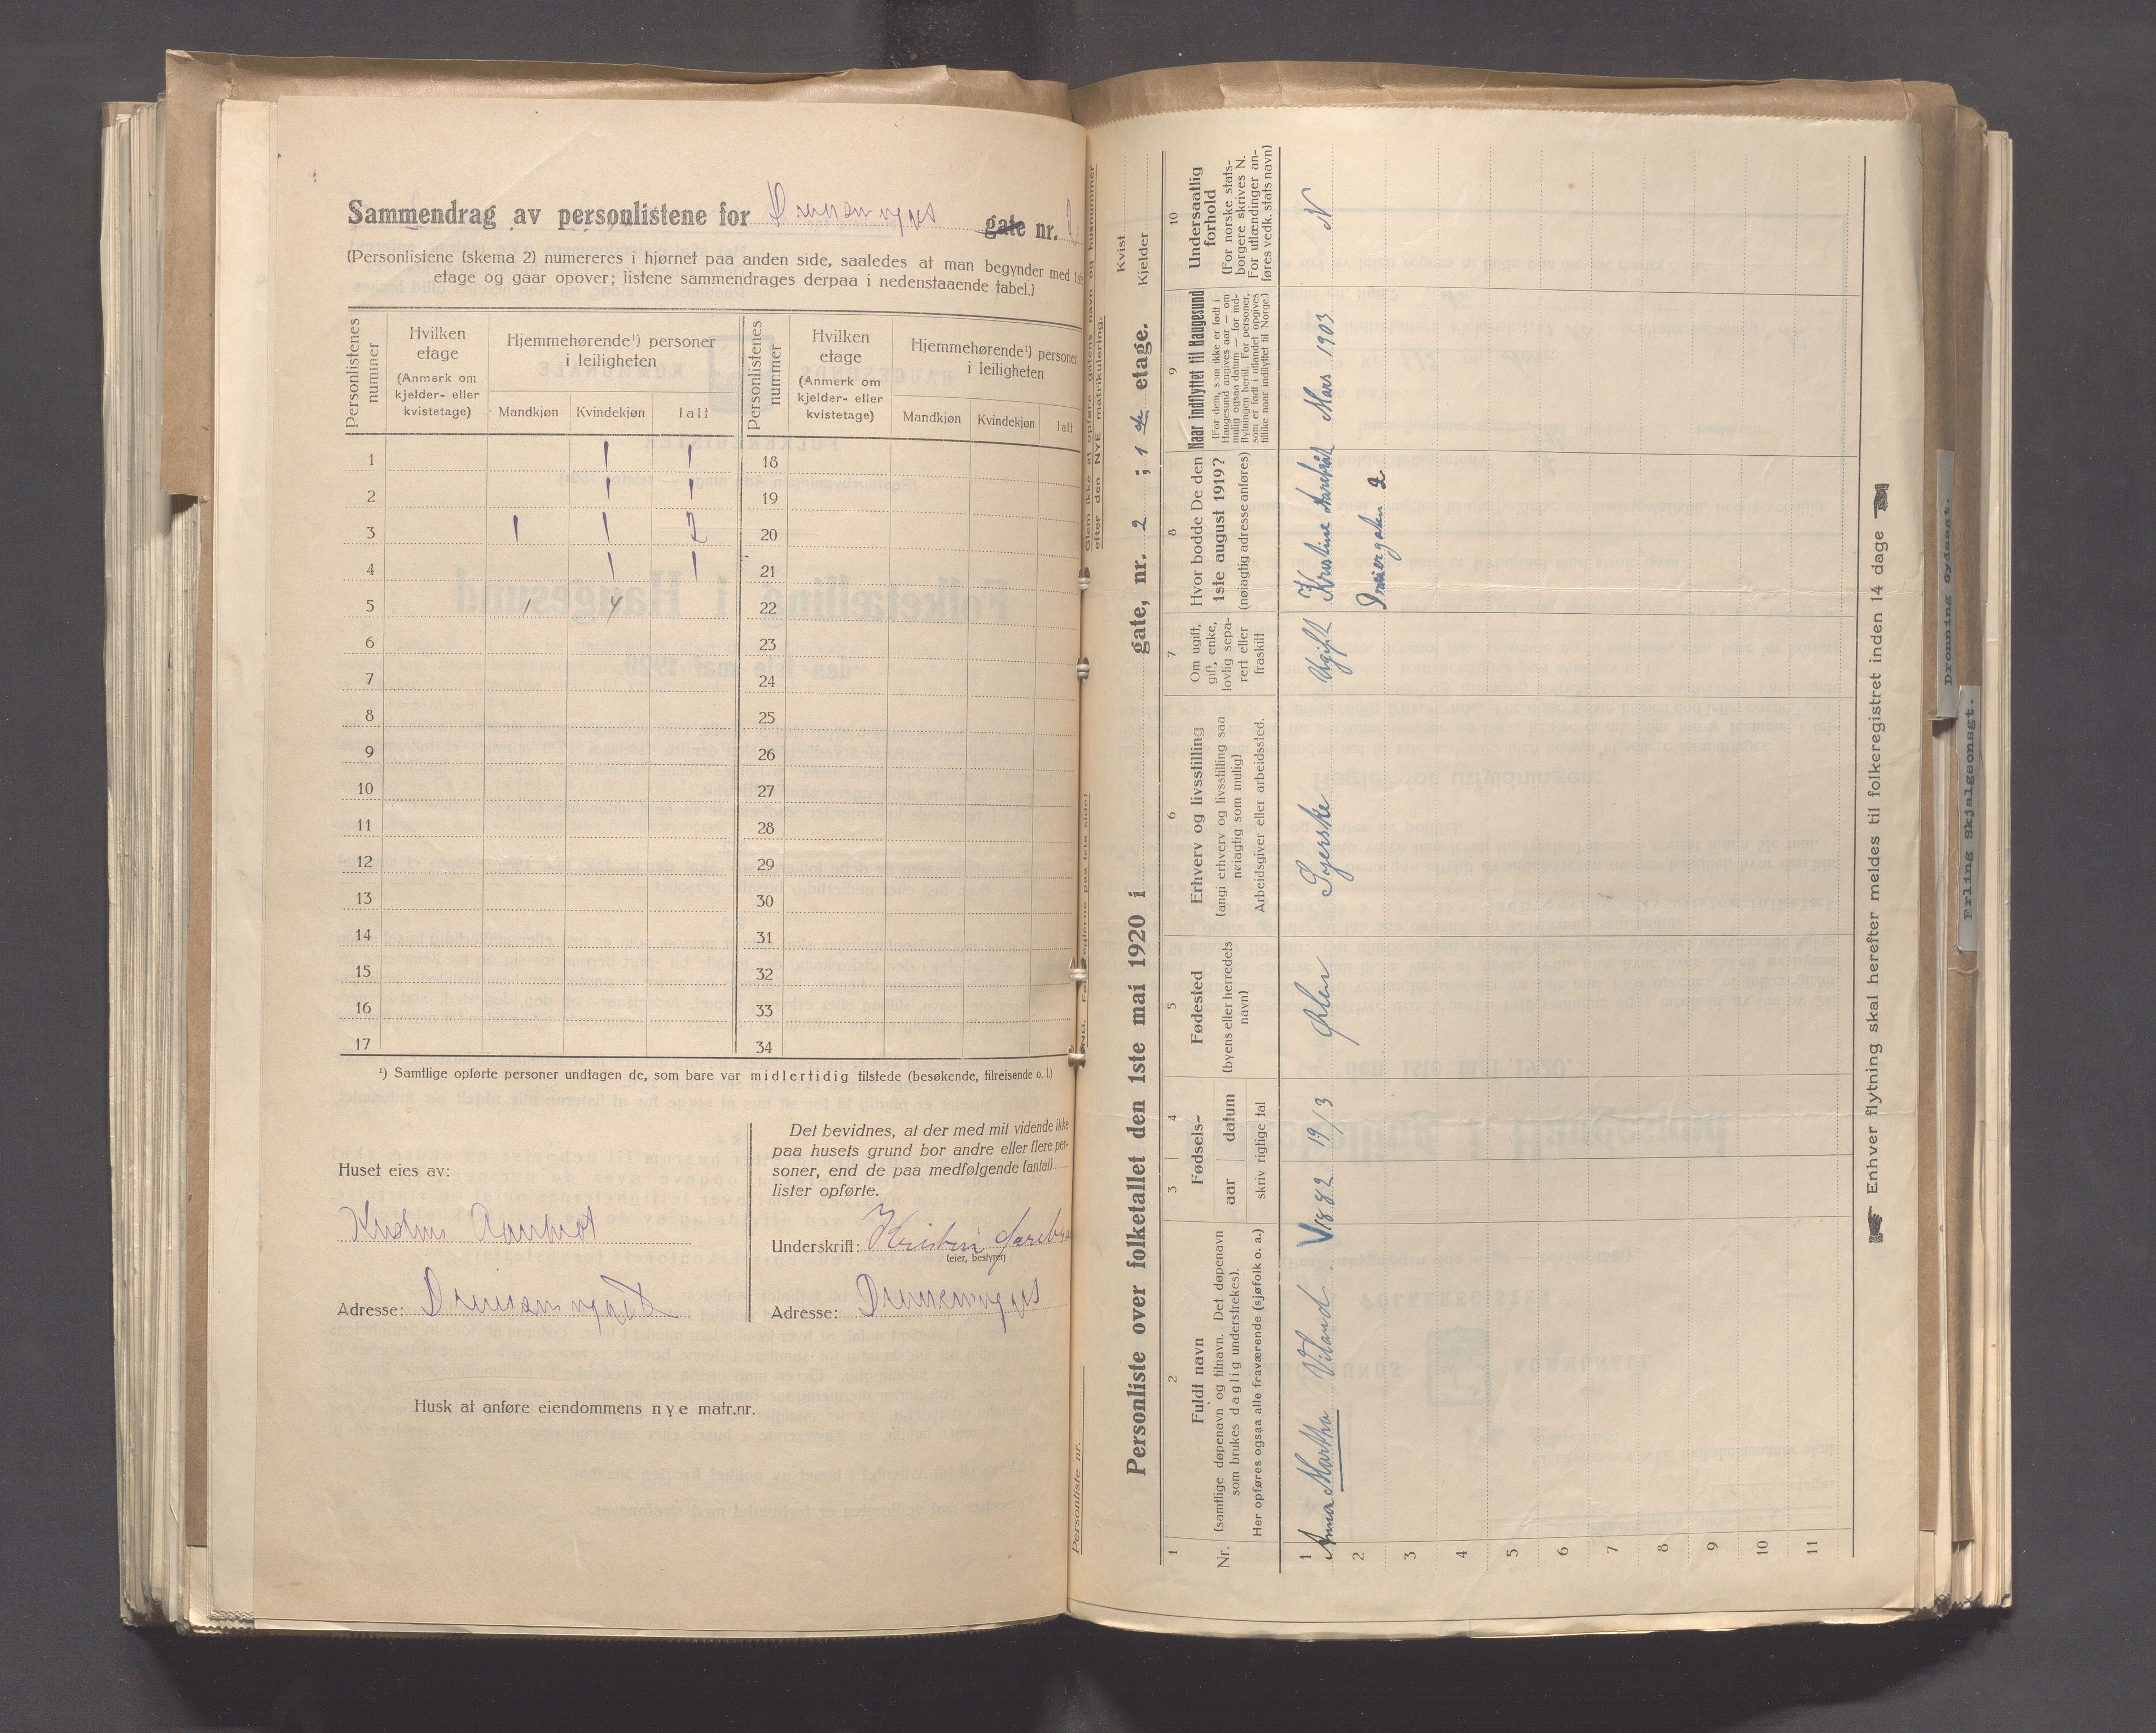 Sammendrag av personlistene for gate nr.
(Personlistene (skema 2) numereres i hjørnet paa anden side, saaledes at man begynder med 1ste
etage og gaar opover; listene sammendrages derpaa i nedenstaaende tabel.)
Personlistenes nummer
Hvilken etage (Anmerk om kjelder- eller kvistetage)
Hjemmehørende¹) personer i leiligheten
Mandkjøn Kvindekjøn Ialt
Personlistenes nummer
Hvilken etage (Anmerk om kjelder- eller kvistetage)
Hjemmehørende¹) personer i leiligheten
Mandkjøn Kvindekjøn Ialt
1 1 1 18
2 1 1 19
3 1 1 2 20
4 1 1 21
5 1 4 22
6 23
7 24
8 25
9 26
10 27
11 28
12 29
13 30
14 31
15 32
16 33
17 34
¹) Samtlige opførte personer undtagen de, som bare var midlertidig tilstede (besøkende, tilreisende o. l.)
Huset eies av:
Adresse:
Det bevidnes, at der med mit vidende ikke
paa husets grund bor andre eller flere per-
soner, end de paa medfølgende (antall)
lister opførte.
Underskrift:
(eier, bestyrer)
Adresse:
Husk at anføre eiendommens nye matr.nr.
Personliste nr.
Glem ikke at opføre gatens navn og husnummer
efter den NYE matrikulering.
Personliste over folketallet den 1ste mai 1920 i gate, nr. 2 ; 1 ste etage.
Kvist
Kjelder
1
Nr.
2
Fuldt navn
(samtlige døpenavn og tilnavn. Det døpenavn
som brukes daglig understrekes).
Her opføres ogsaa alle fraværende (sjøfolk o. a.)
3 4
Fødsels-
aar datum
skriv rigtige tal
5
Fødested
(byens eller herredets
navn)
6
Erhverv og livsstilling
(angi erhverv og livsstilling saa
nøiagtig som mulig)
Arbeidsgiver eller arbeidssted.
7
Om ugift,
gift, enke,
lovlig sepa-
rert eller
fraskilt
8
Hvor bodde De den
1ste august 1919?
(nøiagtig adresse anføres)
9
Naar indflyttet til Haugesund
(For dem, som ikke er født i
Haugesund angives aar — om
mulig ogsaa datum — for ind-
flytningen hertil. For personer,
som er født i utlandet opgives
tillike naar indflyttet til Norge.)
10
Undersaatlig
forhold
(For norske stats-
borgere skrives N.
For utlændinger an-
føres vedk. stats navn)
1 Anna Martha Viland 1882 19/3 Ølen Syerske Ugift Kristine Aarebrot Mars 1903 N
2
3
4
5
6
7
8
9
10
11
Enhver flytning skal herefter meldes til folkeregistret inden 14 dage
Dronning Gydasgt.
Erling Skjalgsonsgt.